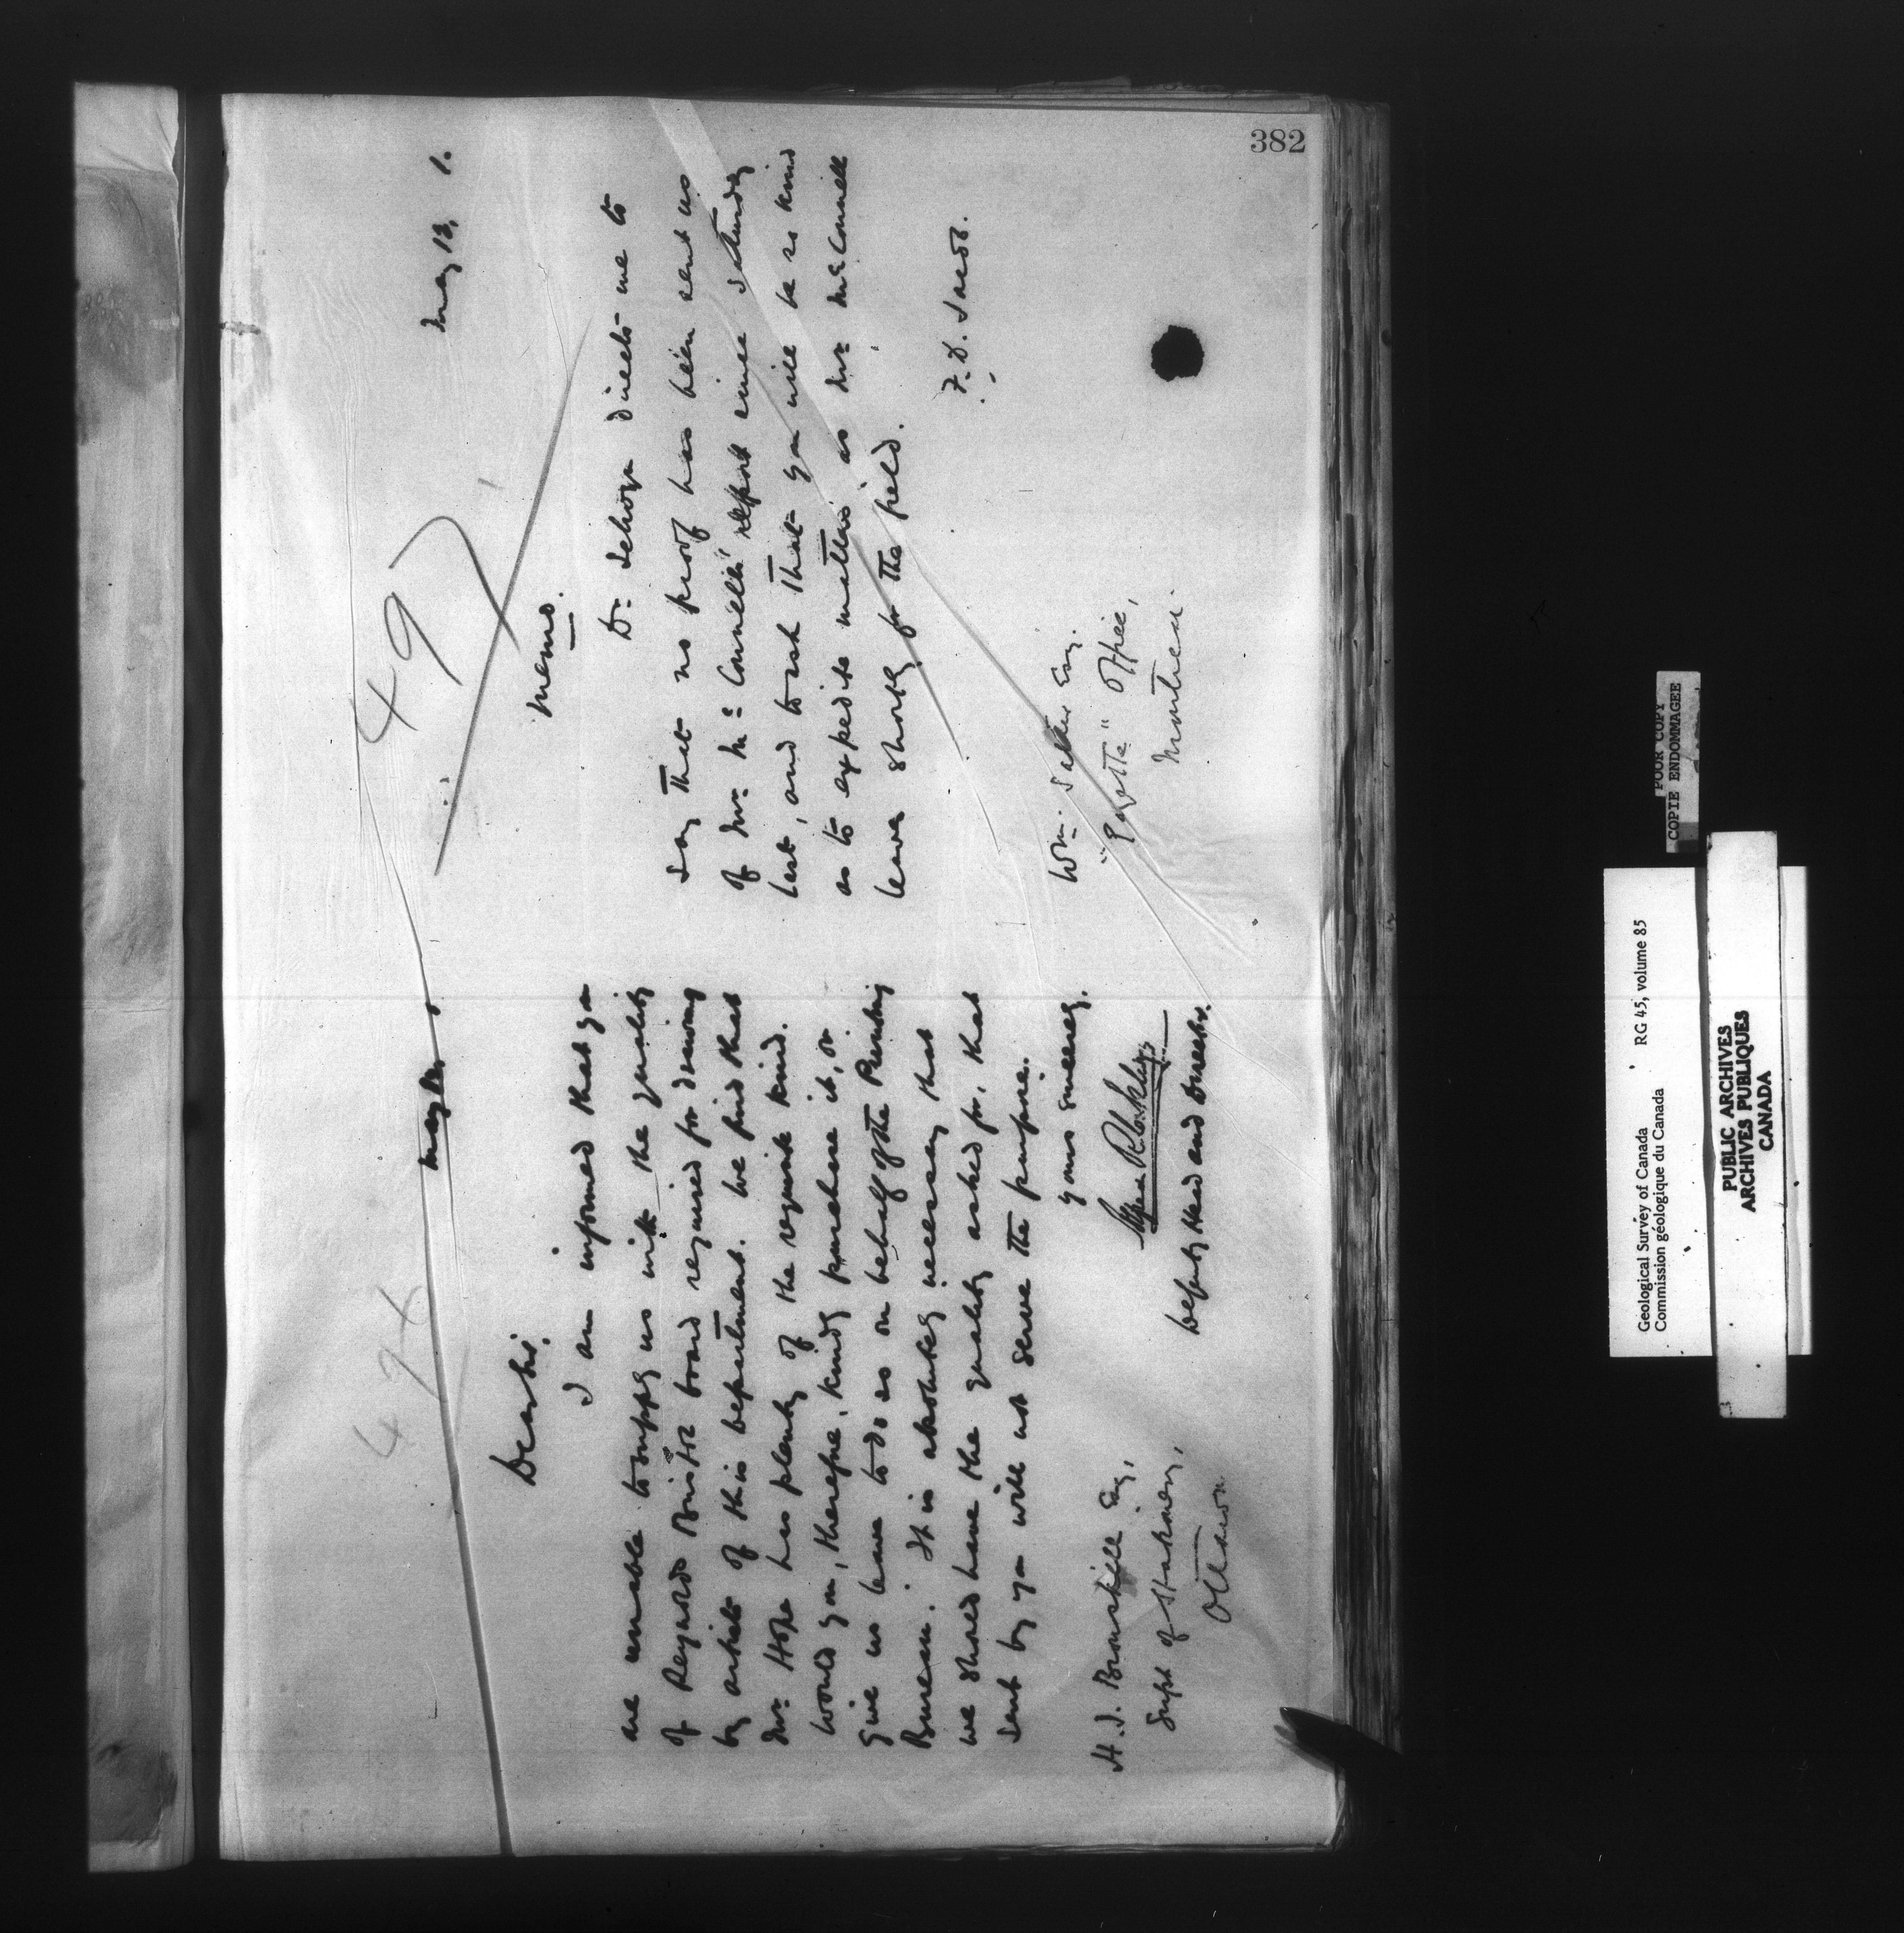 382
49
May
Dear Sir,
I am informed that you
are unable to supply us with the quality
of Reynolds Bristol board required for drawing
by artists of this department. We find that
Mr. Hope has plenty of the requisite kind.
Would you, therefore, kindly purchase it, or
give us leave to do so on behalf of the Printing
Bureau. It is absolutely necessary that
we should have the quality asked for, that
sent by you will not serve the purpose.
Yours sincerely,
Deputy Head and Director.
H. J. Bronskill Esq,
Supt of Stationery,
Ottawa
497
May 13, 1.
Memo.
Dr. Selwyn directs me to
say that no proof has been sent us
of Mr. McConnell's report since Saturday
last, and to ask that you will be so kind
as to expedite matters as Mr. McConnell
leaves shortly for the field.
Wm. Esq.
"Gazette" Office,
Montreal.
POOR COPY
COPIE ENDOMMAGEE
Geological Survey of Canada RG 45, volume 85
Commission géologique du Canada
PUBLIC ARCHIVES
ARCHIVES PUBLIQUES
CANADA